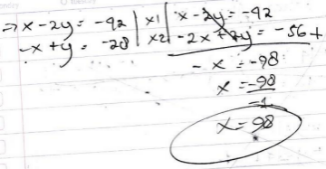 ⇒ x - 2y = -42 | x1 | x - 2y = -42
-x + y = -28 | x2 | -2x + 2y = -56 +
- x = -98
x = -98
-1
x = 98